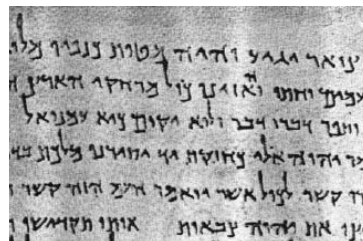 צואר יגיע והיה מטות כנפיו מלו
וחתו והאזינו כול מרחקי הארץ
דברו דבר ולוא יקום כיא עמנואל
יהוה אלי כחזקת יד יסירנו מלכת
קשר לכול אשר יואמר העם הזה קשר
את יהוה צבאות אותו תקדישו